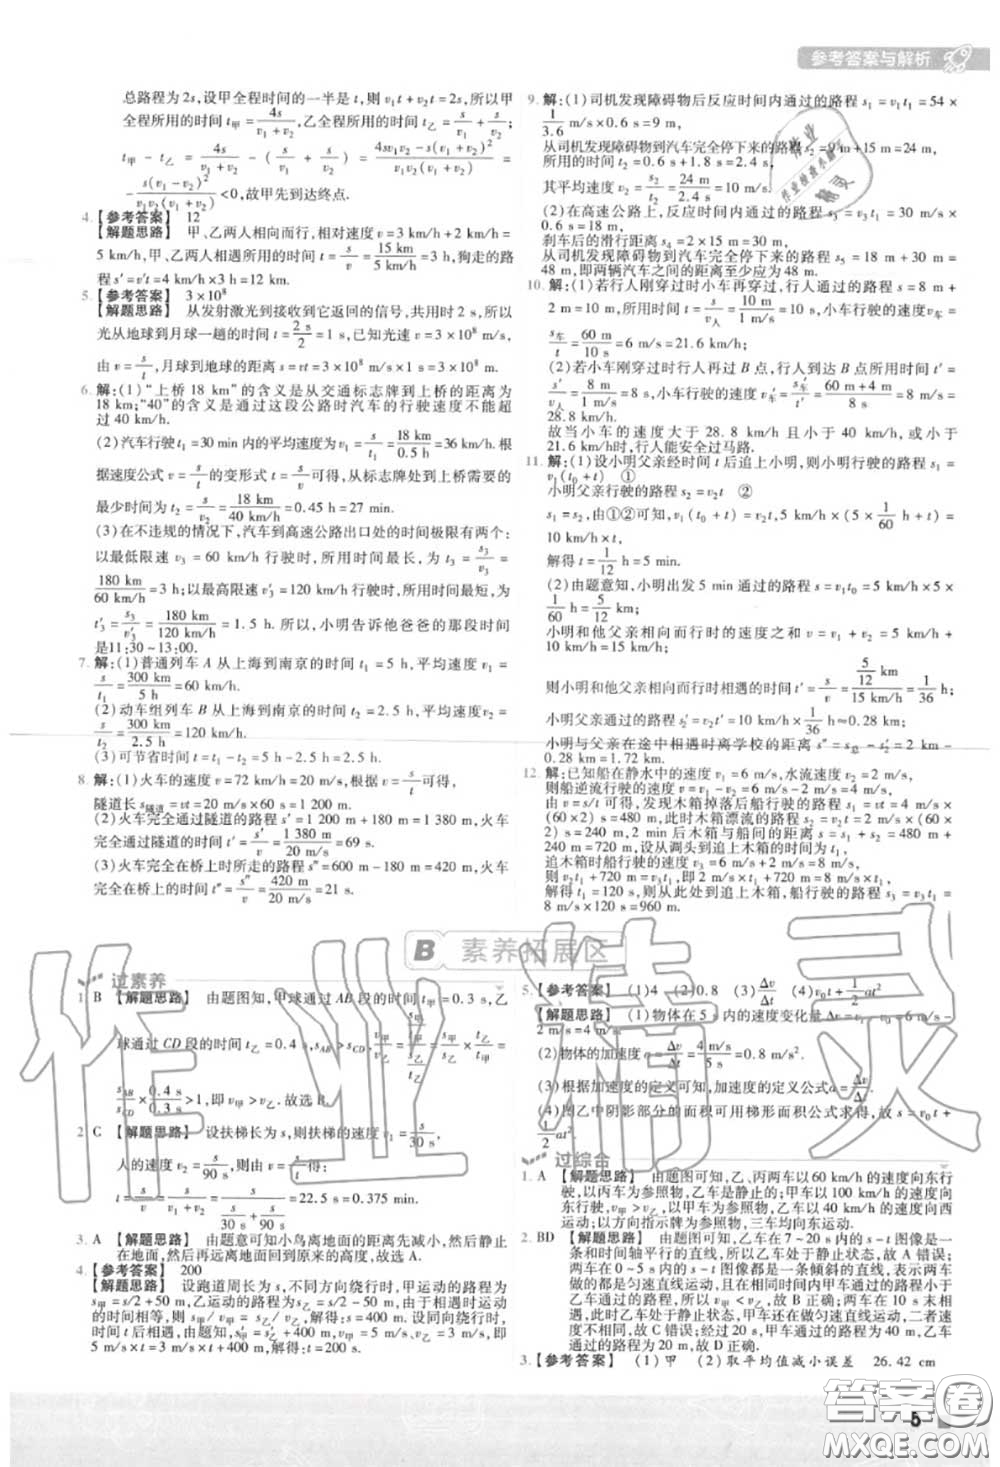 参考答案与解析
总路程为2s,设甲全程时间的一半是t,则v₁t+v₂t=2s,所以甲
全程所用的时间t甲=4s/(v₁+v₂),乙全程所用的时间t乙=s/v₁+s/v₂.
t甲-t乙=4s/(v₁+v₂)-(s/v₁+s/v₂)=(4sv₁v₂-s(v₁+v₂)²)/(v₁v₂(v₁+v₂))=
-s(v₁-v₂)²/(v₁v₂(v₁+v₂))<0,故甲先到达终点.
4.【参考答案】 12
【解题思路】 甲、乙两人相向而行,则v=4 km/h+2 km/h=
6 km/h,甲、乙两人相遇所用的时间t=s/v=18 km/6 km/h=3 h,狗走的路
程s′=v′t=4 km/h×3 h=12 km.
5.【参考答案】 3×10⁸
【解题思路】 从发射激光到接收到它返回的信号,共用时2 s,所以
光从地球到月球一趟的时间t=2 s/2=1 s,已知光速v=3×10⁸ m/s,
由v=s/t,月球到地球的距离s=vt=3×10⁸ m/s×1 s=3×10⁸ m.
6.解:(1)“上桥18 km”的含义是从交通标志牌到上桥的距离为
18 km;“40”的含义是通过这段公路时汽车的行驶速度不能超
过40 km/h.
(2)汽车行驶t₁=30 min内的平均速度v₁=s/t₁=18 km/0.5 h=36 km/h.根
据速度公式v=s/t的变形式t=s/v可得,从标志牌处到上桥需要的
最少时间为t₂=s/v₂=18 km/40 km/h=0.45 h=27 min.
(3)在不违规的情况下,汽车到高速公路出口处的时间极限有两个:
以最低限速v₃=60 km/h行驶时,所用时间最长,为t₃=s₃/v₃=
180 km/60 km/h=3 h;以最高限速v′₃=120 km/h行驶,所用时间最短,为
t′₃=s₃/v′₃=180 km/120 km/h=1.5 h.所以,小明告诉他爸爸的那段时间
是11:30~13:00.
7.解:(1)普通列车A从上海到南京的时间t₁=5 h,平均速度v₁=
s/t₁=300 km/5 h=60 km/h.
(2)动车组列车B从上海到南京的时间t₂=2.5 h,平均速度v₂=
s/t₂=300 km/2.5 h=120 km/h.
(3)可节省时间t=t₁-t₂=5 h-2.5 h=2.5 h.
8.解:(1)火车的速度v=72 km/h=20 m/s,根据v=s/t可得,
隧道长s隧道=vt=20 m/s×60 s=1 200 m.
(2)火车完全通过隧道的路程s′=1 200 m+180 m=1 380 m,火
车完全通过隧道的时间t′=s′/v=1 380 m/20 m/s=69 s.
(3)火车完全在桥上时所走的路程s″=600 m-180 m=420 m,火
车完全在桥上的时间t″=s″/v=420 m/20 m/s=21 s.
9.解:(1)司机发现障碍物后反应时间内通过的路程s₁=v₁t₁=54×
1/3.6 m/s×0.6 s=9 m,
从司机发现障碍物到汽车完全停下来的路程s₂=9 m+15 m=24 m,
所用的时间t₂=0.6 s+1.8 s=2.4 s,
其平均速度v₂=s₂/t₂=24 m/2.4 s=10 m/s.
(2)在高速公路上,反应时间内通过的路程s₃=v₃t₁=30 m/s×
0.6 s=18 m,
刹车后的滑行距离s₄=2×15 m=30 m,
从司机发现障碍物到汽车完全停下来的路程s₅=18 m+30 m=
48 m,即两辆汽车之间的距离至少应为48 m.
10.解:(1)若行人刚穿过时小车再穿过,行人通过的路程s=8 m+
2 m=10 m,所用时间t=s/v人=10 m/1 m/s=10 s,小车行驶的速度v车=
s车/t=60 m/10 s=6 m/s=21.6 km/h.
(2)若小车刚穿过时行人再过B点,行人所用时间t′=
s′/v人=8 m/1 m/s=8 s,小车行驶的速度v′车=s′车/t′=(60 m+4 m)/8 s=8 m/s=
28.8 km/h.
故当小车的速度大于28.8 km/h且小于40 km/h,或小于
21.6 km/h时,行人能安全过马路.
11.解:(1)设小明父亲经时间t后追上小明,则小明的路程s₁=
v₁(t₀+t) ①
小明父亲行驶的路程s₂=v₂t ②
s₁=s₂,由①②可知,v₁(t₀+t)=v₂t,5 km/h×(5×1/60 h+t)=
10 km/h×t,
解得t=1/12 h=5 min.
(2)由题意知,小明出发5 min通过的路程s=v₁t₀=5 km/h×5×
1/60 h=5/12 km.
小明和他父亲相向而行时的速度之和v=v₁+v₂=5 km/h+
10 km/h=15 km/h,
则小明和他父亲相向而行时相遇的时间t′=s/v=(5/12 km)/15 km/h=1/36 h,
小明父亲通过的路程s′₂=v₂t′=10 km/h×1/36 h≈0.28 km.
小明与父亲在途中相遇时离学校的距离s″=s总-s′₂=2 km-
0.28 km=1.72 km.
12.解:已知船在静水中的速度v₁=6 m/s,水流速度v₂=2 m/s,
则船逆流行驶的速度v=v₁-v₂=6 m/s-2 m/s=4 m/s.
由v=s/t可得,发现木箱掉落后船行驶的路程s₁=vt=4 m/s×
(60×2) s=480 m,此时木箱漂流的路程s₂=v₂t=2 m/s×(60×
2) s=240 m,2 min后木箱与船间的距离s=s₁+s₂=480 m+
240 m=720 m,设从调头到追上木箱的时间为t₁,
追木箱时船行驶的速度v₃=v₁+v₂=6 m/s+2 m/s=8 m/s,
则v₂t₁+720 m=v₃t₁,即2 m/s×t₁+720 m=8 m/s×t₁,
解得t₁=120 s,则从此处到追上木箱,船行驶的路程s₃=v₃t₁=
8 m/s×120 s=960 m.
B 素养拓展区
过素养
1.B 【解题思路】 由题图知,甲球通过AB段的时间t甲=0.3 s,乙
球通过CD段的时间t乙=0.4 s,sAB>sCD,v甲/v乙=(sAB/t甲)/(sCD/t乙)=sAB/sCD×t乙/t甲=
sAB/sCD×0.4 s/0.3 s>1,即v甲>v乙.故选B.
2.C 【解题思路】 设扶梯长为s,则扶梯的速度v₁=s/t₁=s/30 s,
人的速度v₂=s/90 s,则由题意得:
t=s/(v₁+v₂)=s/(s/30 s+s/90 s)=22.5 s=0.375 min.
3.A 【解题思路】 由题意可知小鸟离地面的距离先减小,然后停
在地面,然后再远离地面回到原来的高度,故选A.
4.【参考答案】 200
【解题思路】 设跑道周长为s,不同方向绕行时,甲运动的路程为
s甲=s/2+50 m,乙运动的路程为s乙=s/2-50 m;由于相遇时运动
的时间相等,则有s甲/v甲=s乙/v乙,解得:s=400 m.当甲、乙同方
向绕行时,由题意知:s′甲=s′乙+400 m,s′甲=v甲t,s′乙=v乙t,即
5 m/s×t=3 m/s×t+400 m,解得:t=200 s.
5.【参考答案】 (1)4 (2)0.8 (3)Δv/Δt (4)v₀t+1/2at²
【解题思路】 (1)物体在5 s内的速度变化量Δv=
2 m/s=4 m/s.
(2)物体的加速度a=Δv/Δt=4 m/s/5 s=0.8 m/s².
(3)根据加速度的定义可知,加速度的定义公式a=Δv/Δt.
(4)图乙中阴影部分的面积可用梯形面积公式求得,故s=v₀t+
1/2at².
过综合
1.A 【解题思路】 由题图可知,乙、丙两车以60 km/h的速度向东行
驶,以丙车为参照物,乙车是静止的;甲车以100 km/h的速度向
东行驶,v甲>v乙,所以以甲车为参照物,乙车和路边的树都向西
运动;以方向指示牌为参照物,三车均向东运动.
2.BD 【解题思路】 由题图可知,乙车在7~20 s内的s-t图像是一
条和时间轴平行的直线,所以乙车处于静止状态,故A错误;
两车在0~5 s内的s-t图像是一条倾斜的直线,表示两车
做的是匀速直线运动,且在相同时间内甲车通过的路程小于
乙车的,所以v甲<v乙,故B正确;两车在10 s末相遇后,乙车
处于静止状态,甲车还在做匀速直线运动,二者速
度不相同,故C错误;经过20 s,甲车通过的路程为40 m,乙车
通过的路程为20 m,故D正确.
3.【参考答案】 (1)甲 (2)取平均值减小误差 26.42 cm
5
作业精灵
答案圈
MXQE.COM